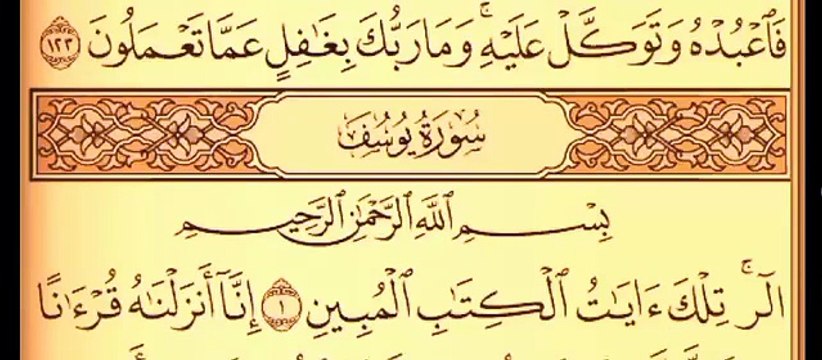 فَٱعۡبُدۡهُ وَتَوَكَّلۡ عَلَيۡهِۚ وَمَا رَبُّكَ بِغَٰفِلٍ عَمَّا تَعۡمَلُونَ ١٢٣
سُورَةُ يُوسُفَ
بِسۡمِ ٱللَّهِ ٱلرَّحۡمَٰنِ ٱلرَّحِيمِ
الٓرۚ تِلۡكَ ءَايَٰتُ ٱلۡكِتَٰبِ ٱلۡمُبِينِ ١ إِنَّآ أَنزَلۡنَٰهُ قُرۡءَٰنًا